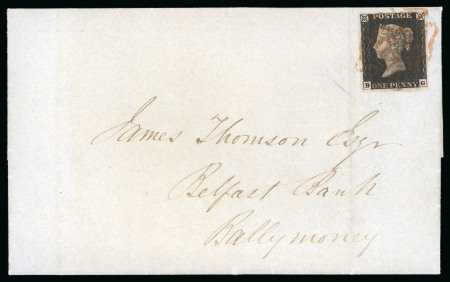 POSTAGE
B G
ONE PENNY
James Thomson Esqr
Belfast Bank
Ballymoney